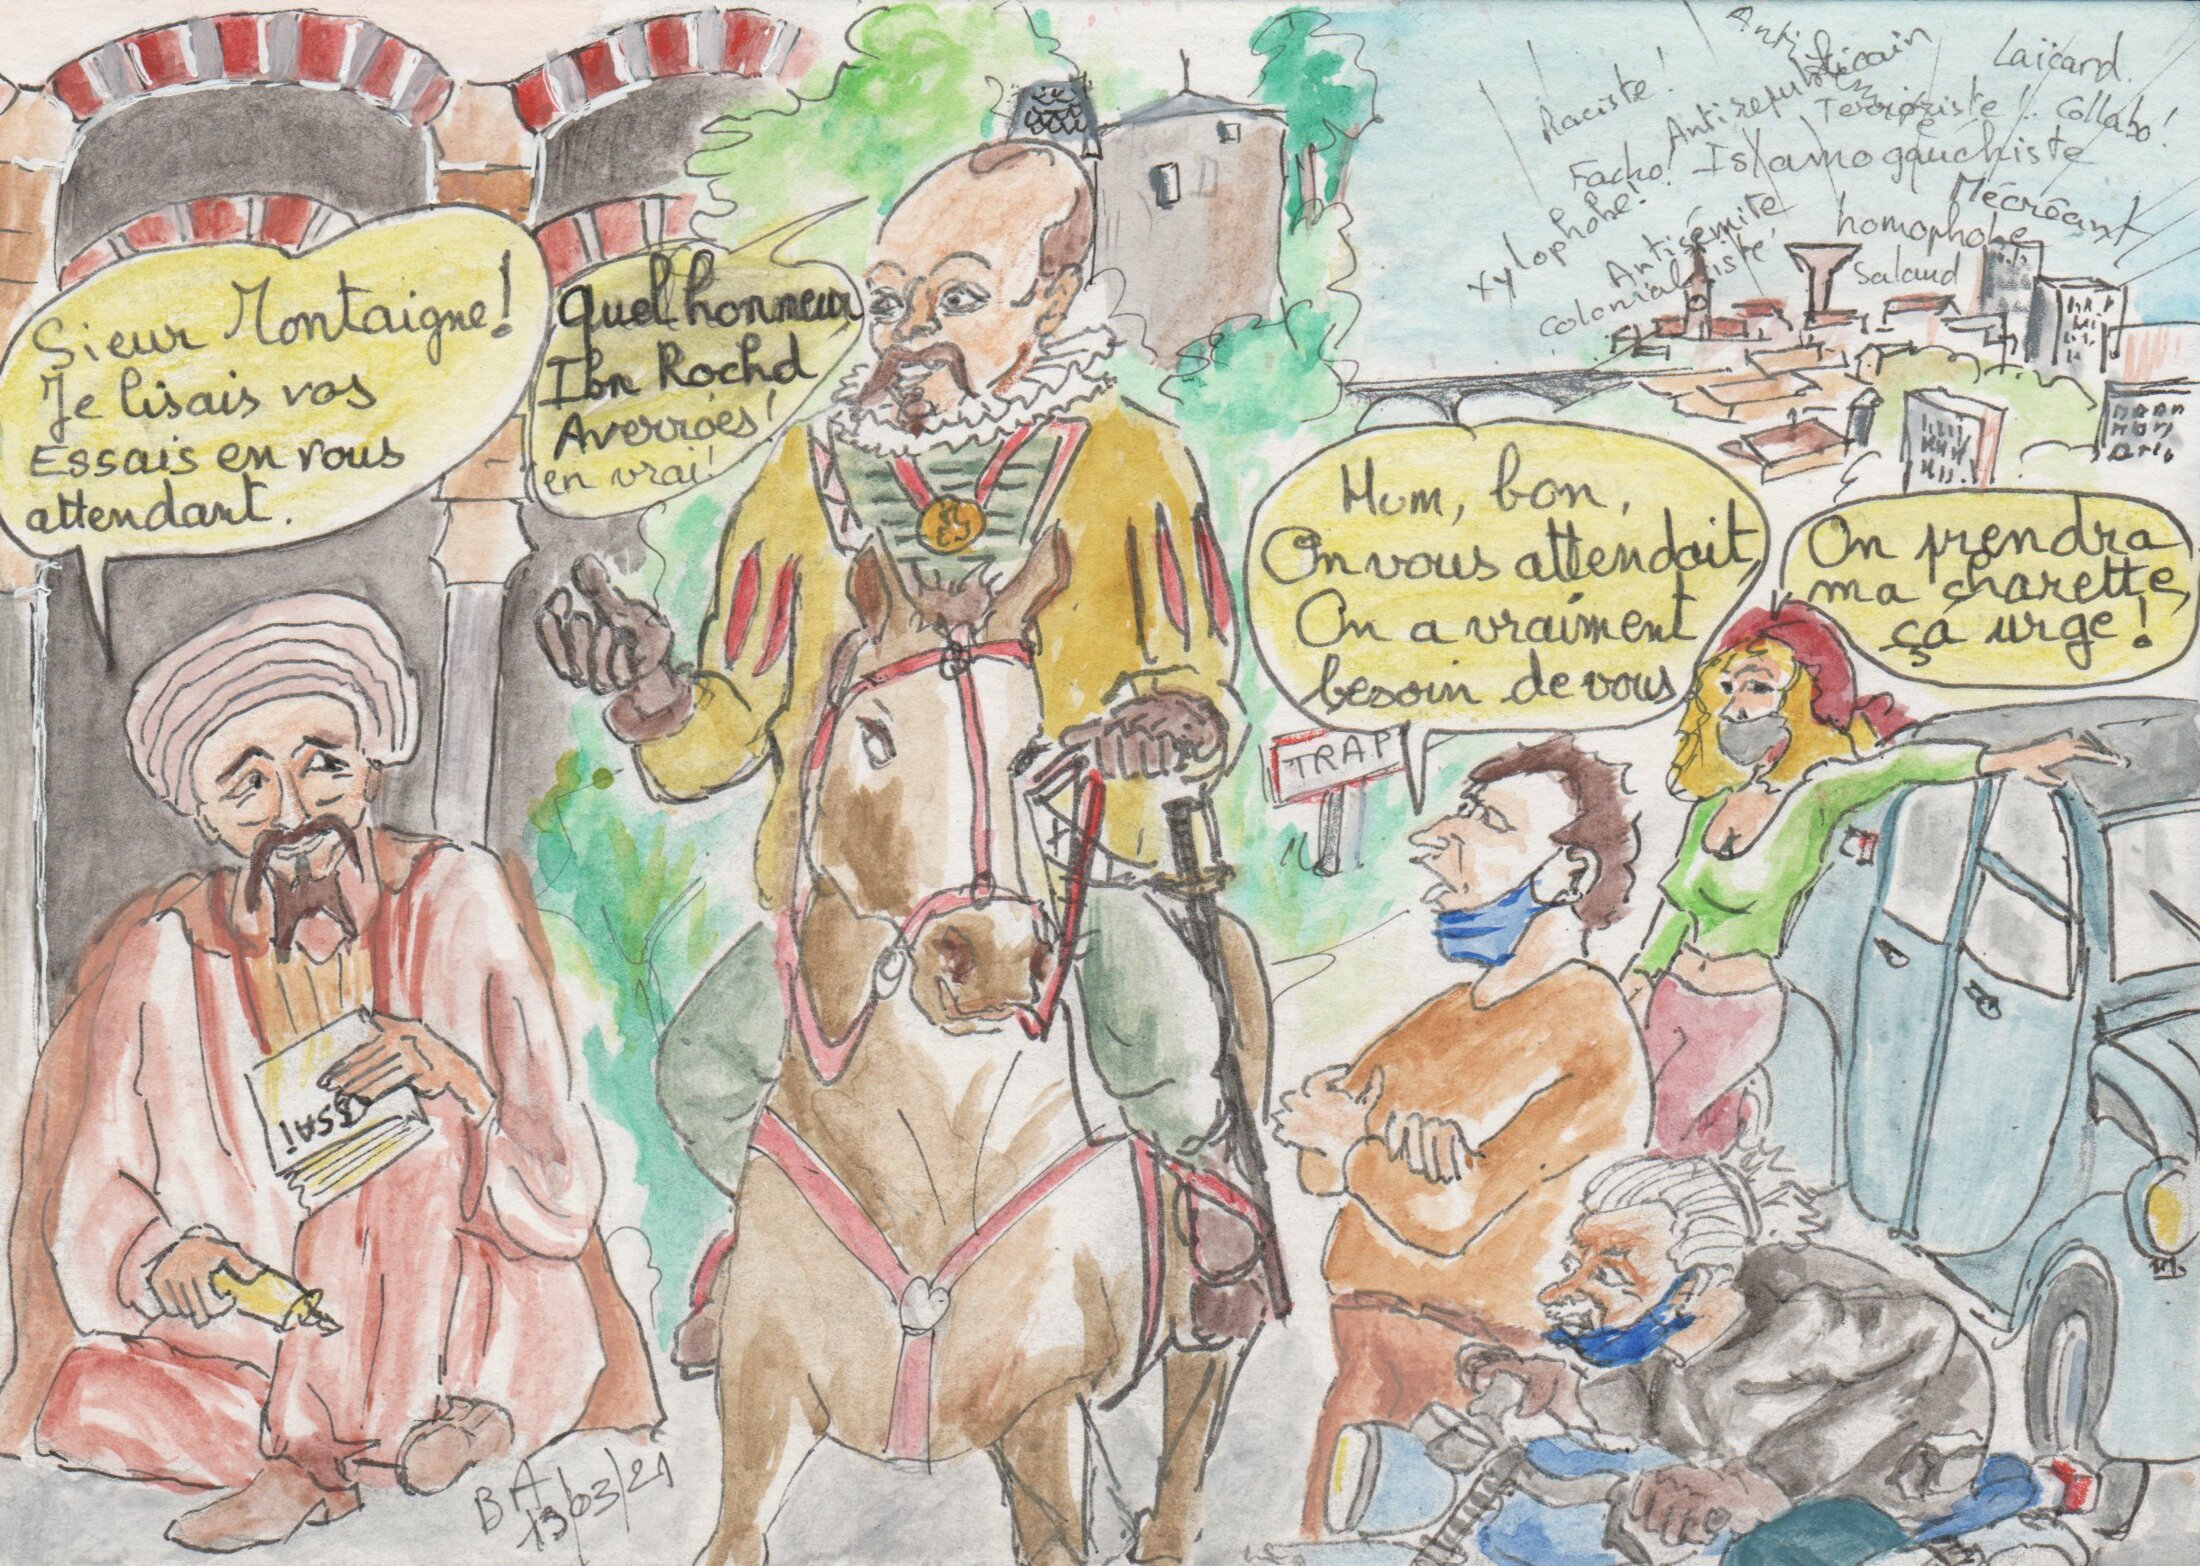 Sieur Montaigne!
Je lisais vos
Essais en vous
attendant.
Quel honneur
Ibn Rochd
Averroès!
en vrai!
Raciste!
Antirepublicain
Anti
Laïcard.
Terroriste!
Collabo!
Facho!
Islamogauchiste
Xylophobe!
Mécréant
Antisémite
homophobe
Colonialiste!
Salaud
Hum, bon,
On vous attendait,
On a vraiment
besoin de vous
On prendra
ma charette,
ça urge!
TRAP
ESSAI
BA
13/03/21